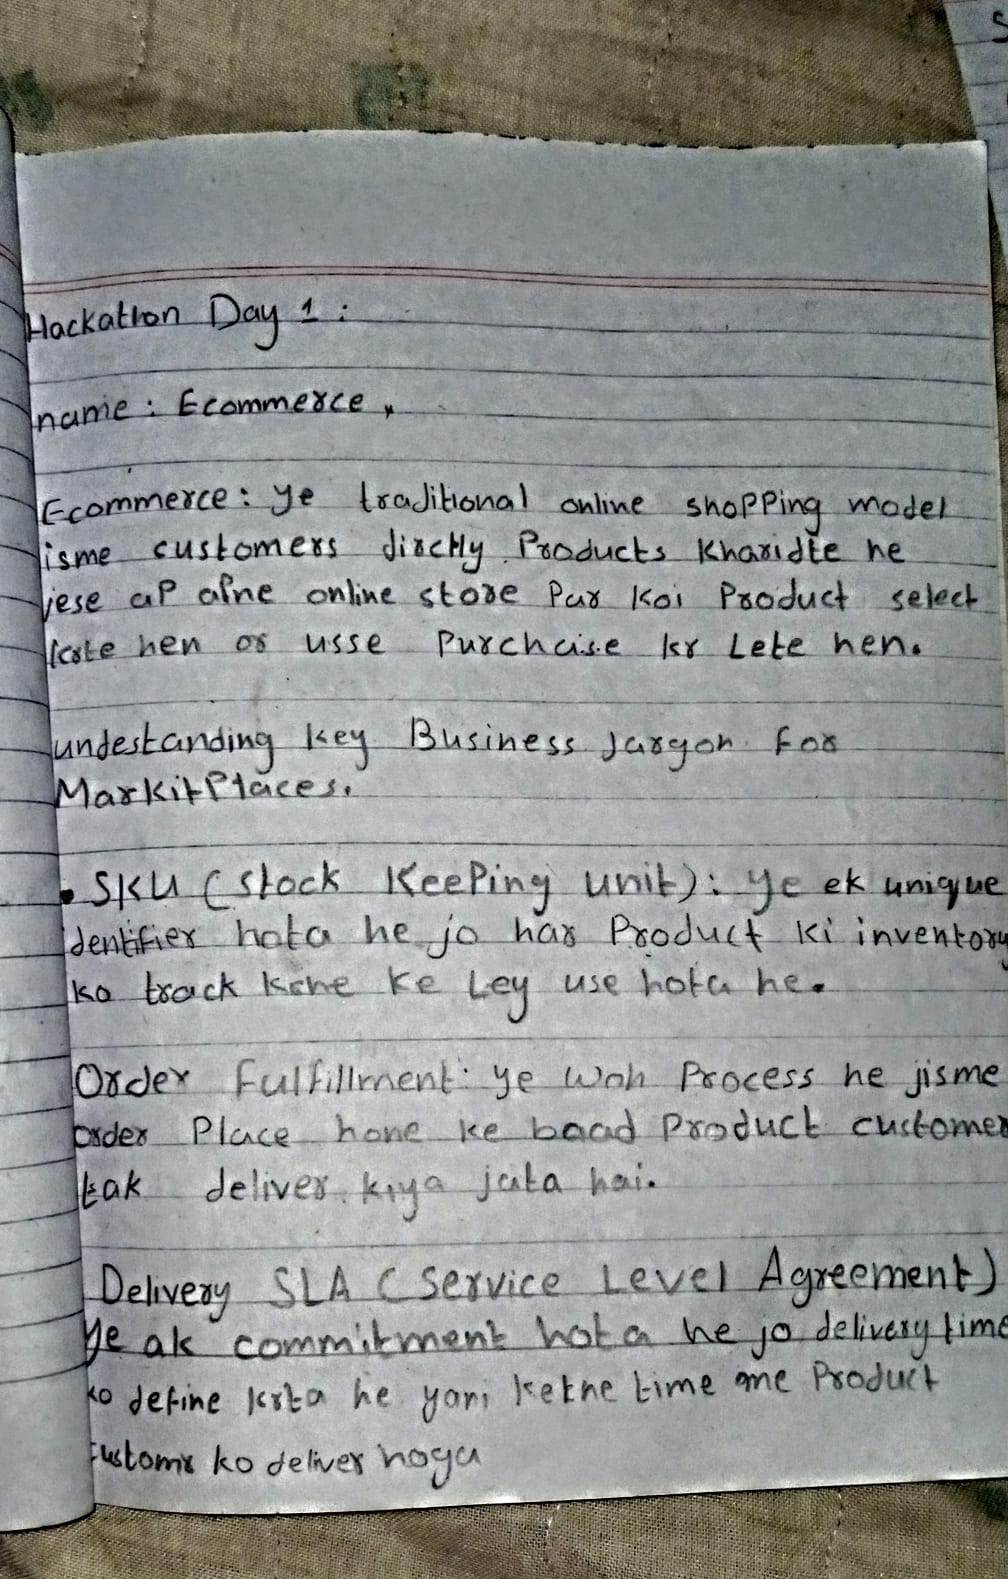 Hackathon Day 1 :
name : Ecommerce,
Ecommerce: ye traditional online shopping model
isme customers dirctly Products Kharidte he
jese aP apne online store Par Koi Product select
krte hen or usse Purchaise kr Lete hen.
undestanding key Business Jargon for
MarkitPlaces.
• SKU (Stock Keeping unit): ye ek unique
identifier hota he jo har Product ki inventory
ko track krne ke Ley use hota he.
Order Fulfillment: ye woh Process he jisme
order Place hone ke baad Product customer
tak deliver kiya jata hai.
Delivery SLA (Service Level Agreement)
ye ak commitment hota he jo delivery time
ko define krta he yani ketne time me Product
customr ko deliver hoga